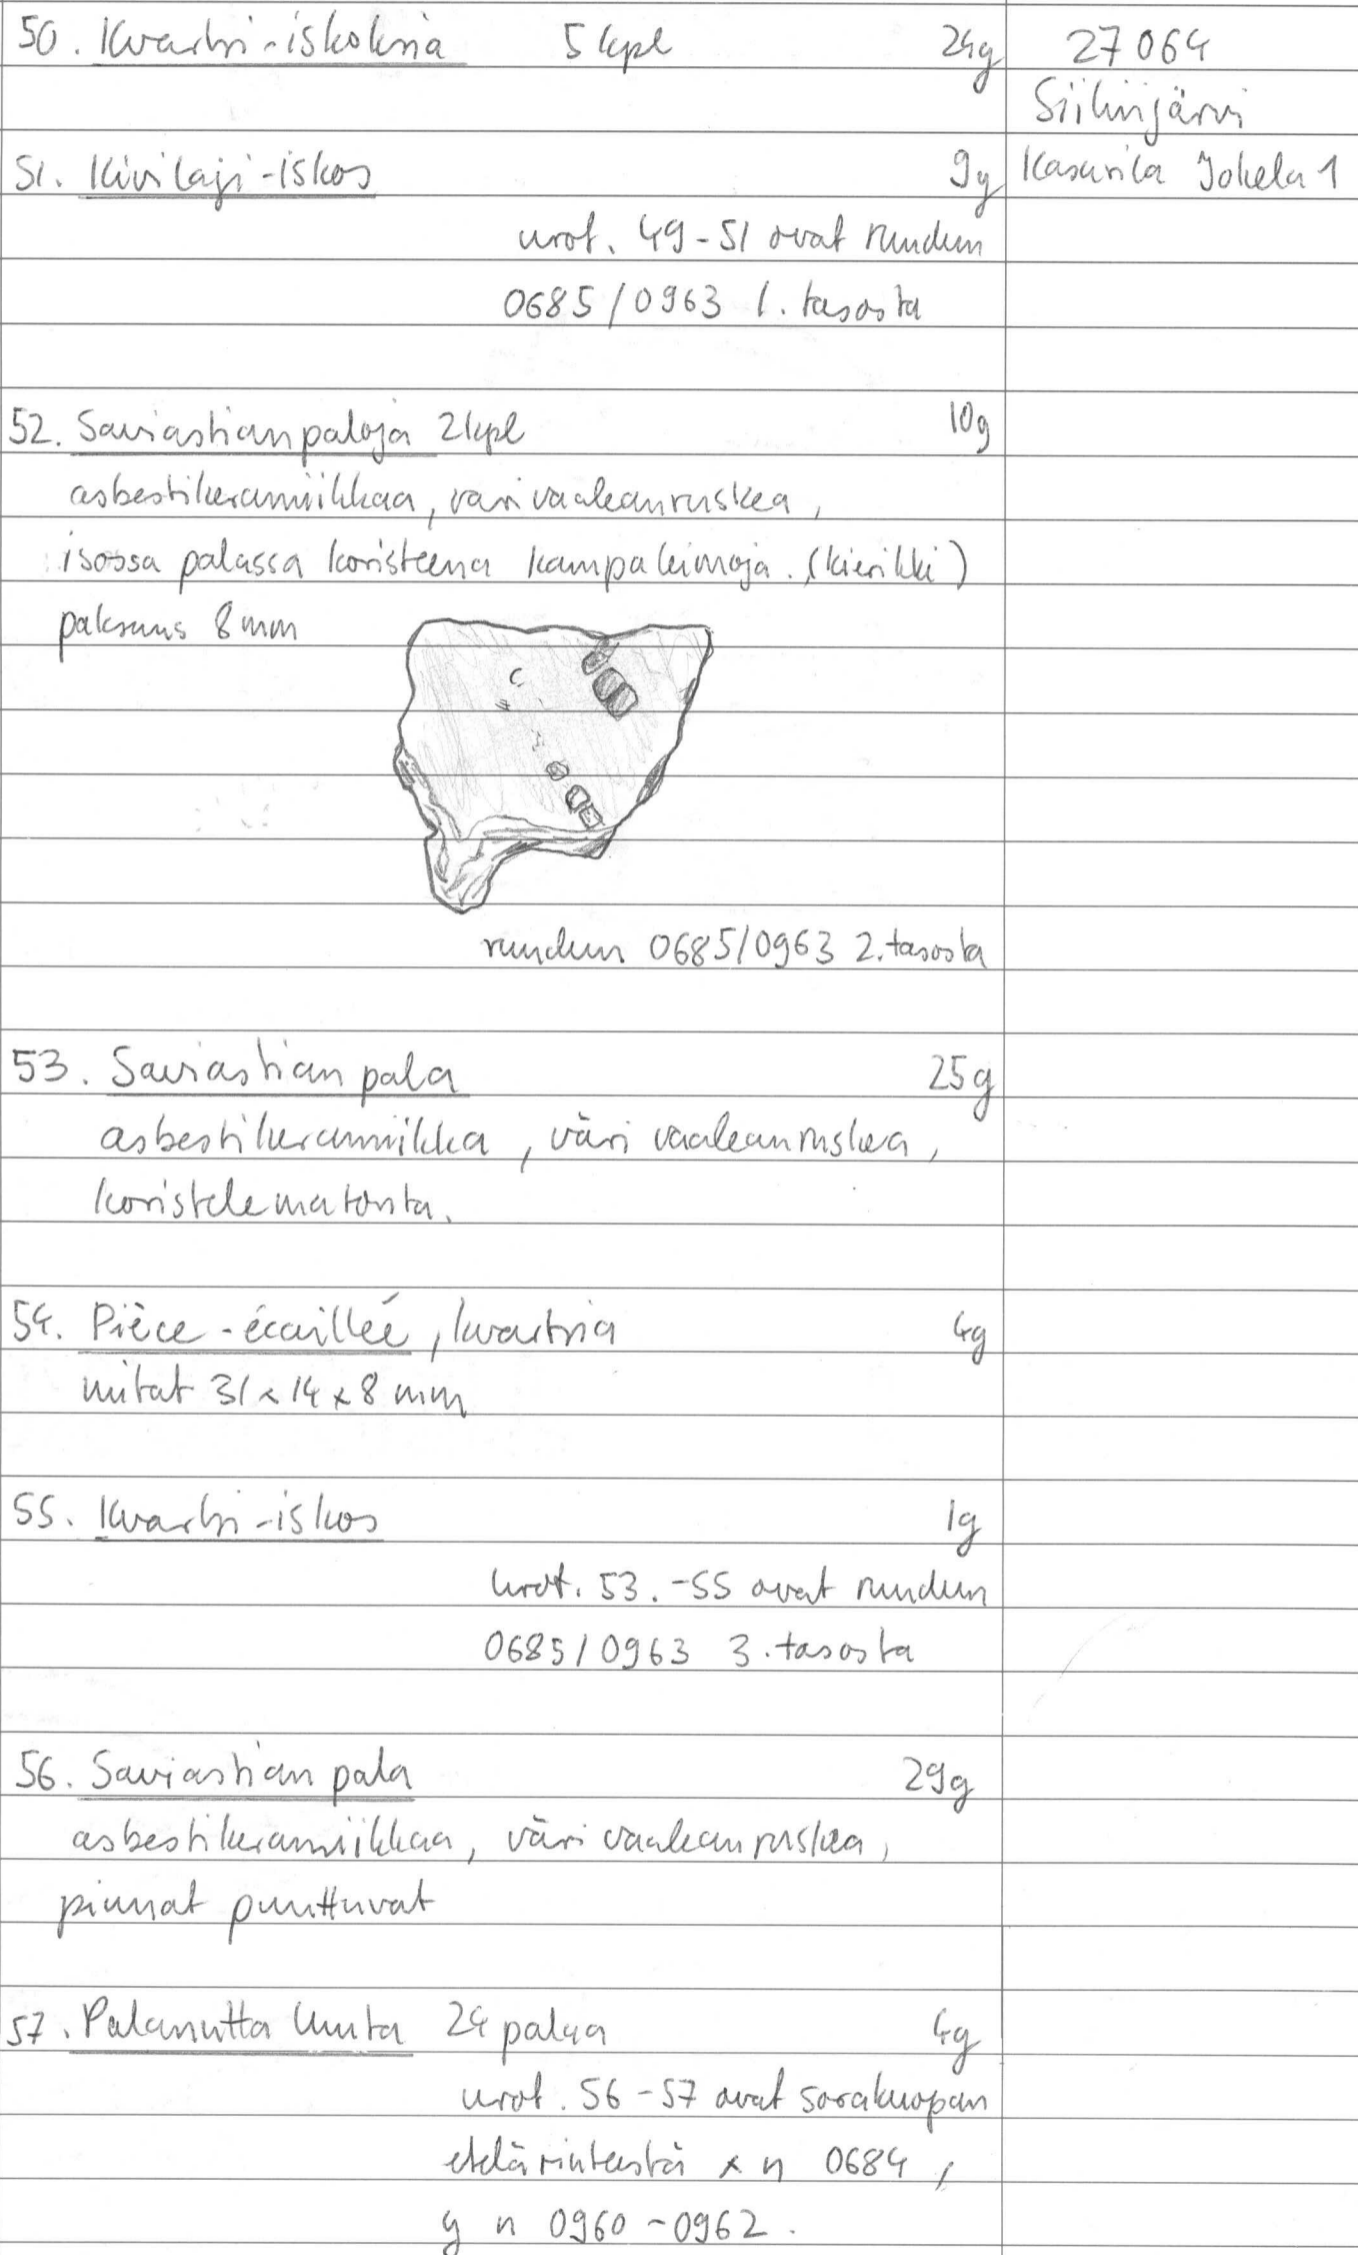 50. Kvartsi-iskoksia 5 kpl 24g
27064
Siilinjärvi
51. Kivilaji-iskos 9g
Kasurila Jokela 1
nrot. 49-51 ovat ruudun
0685/0963 1. tasosta
52. Saviastianpaloja 2 kpl 10g
asbestikeramiikkaa, väri vaaleanruskea,
isossa palassa koristeena kampaleimoja. (kierikki)
paksuus 8 mm
ruudun 0685/0963 2. tasosta
53. Saviastian pala 25g
asbestikeramiikka, väri vaaleanruskea,
koristelematonta.
54. Pièce-écailleé, kvartsia 4g
mitat 31 x 14 x 8 mm
55. Kvartsi-iskos 1g
nrot. 53.-55 ovat ruudun
0685/0963 3. tasosta
56. Saviastian pala 29g
asbestikeramiikkaa, väri vaaleanruskea,
pinnat puuttuvat
57. Palanutta luuta 24 palaa 4g
nrot. 56-57 ovat sorakuopan
etelärinteestä x n 0684,
y n 0960-0962.